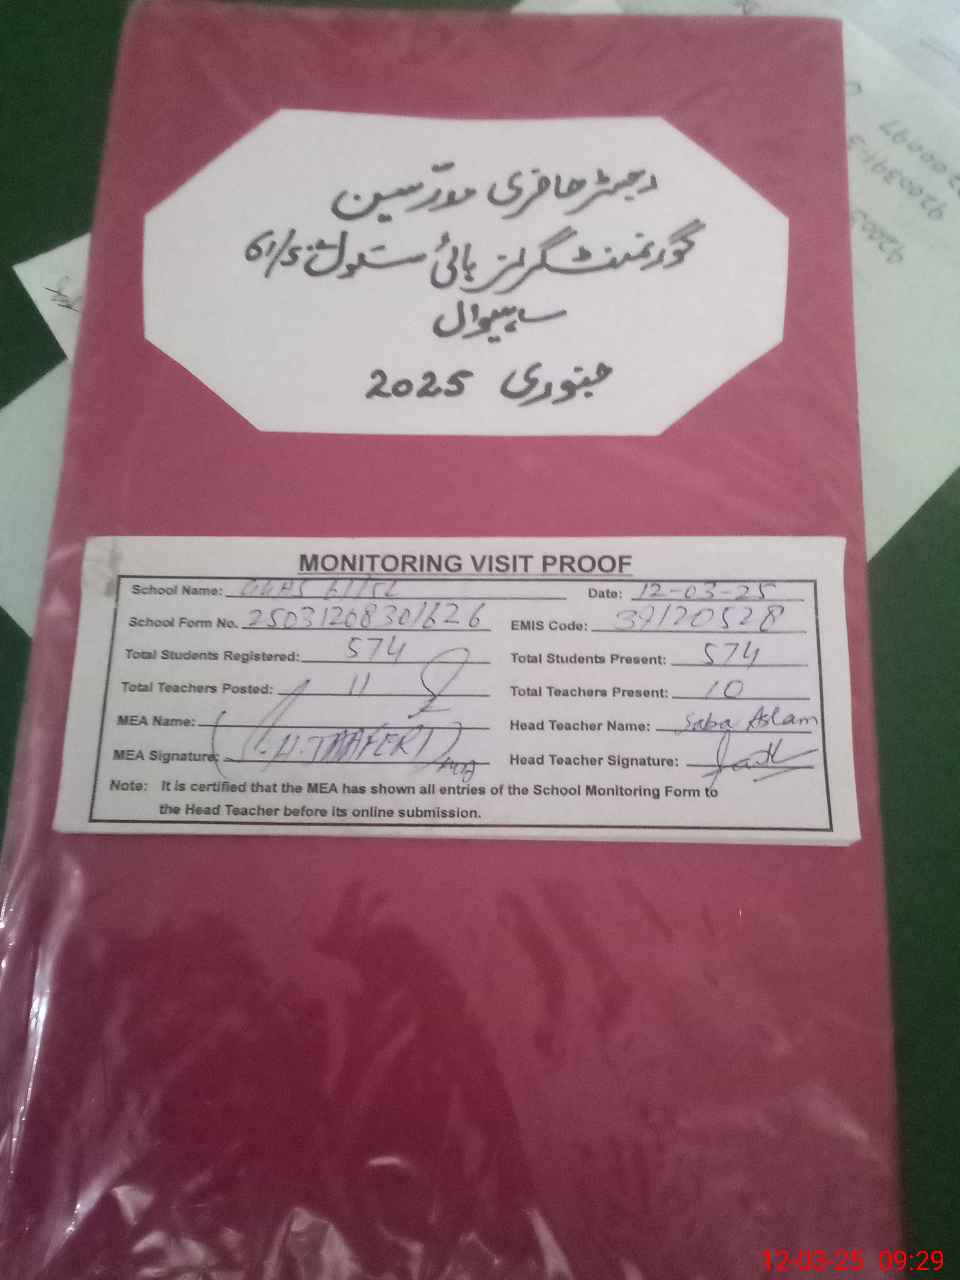 رجسٹر حاضری مدرّسین
گورنمنٹ گرلز ہائی سکول 61/5
ساہیوال
جنوری 2025
MONITORING VISIT PROOF
School Name: GGHS 61/5L Date: 12-03-25
School Form No. 25031208301626 EMIS Code: 39120528
Total Students Registered: 574 Total Students Present: 574
Total Teachers Posted: 11 Total Teachers Present: 10
MEA Name: Head Teacher Name: Saba Aslam
MEA Signature: Head Teacher Signature:
Note: It is certified that the MEA has shown all entries of the School Monitoring Form to
the Head Teacher before its online submission.
12-03-25 09:29